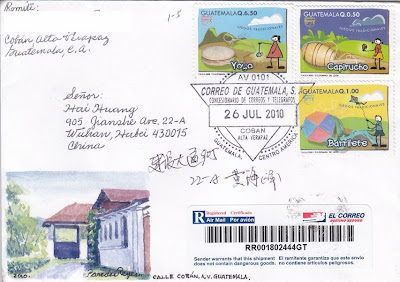 Remite:
1-5
Cobán Alta Verapaz
Guatemala C.A.
Señor:
Hai Huang
905 Jianshe Ave. 22-A
Wuhan, Hubei 430015
China
22-A 黄海
GUATEMALA Q.6.50
JUEGOS TRADICIONALES
Yoyo
GUATEMALA Q.0.50
JUEGOS TRADICIONALES
Capirucho
GUATEMALA Q.1.00
JUEGOS TRADICIONALES
Barrilete
AV 0101
CORREO DE GUATEMALA, S.A.
CONCESIONARIO DE CORREOS Y TELEGRAFOS
26 JUL 2010
COBAN
ALTA VERAPAZ
GUATEMALA, CENTRO AMERICA
R Registered Certificado
Air Mail Por avión
EL CORREO
RR001802444GT
Sender warrents that this shipment does not contain dangerous goods.
El remitente garantiza que este envío no contiene artículos peligrosos.
CALLE COBÁN, A.V. GUATEMALA.